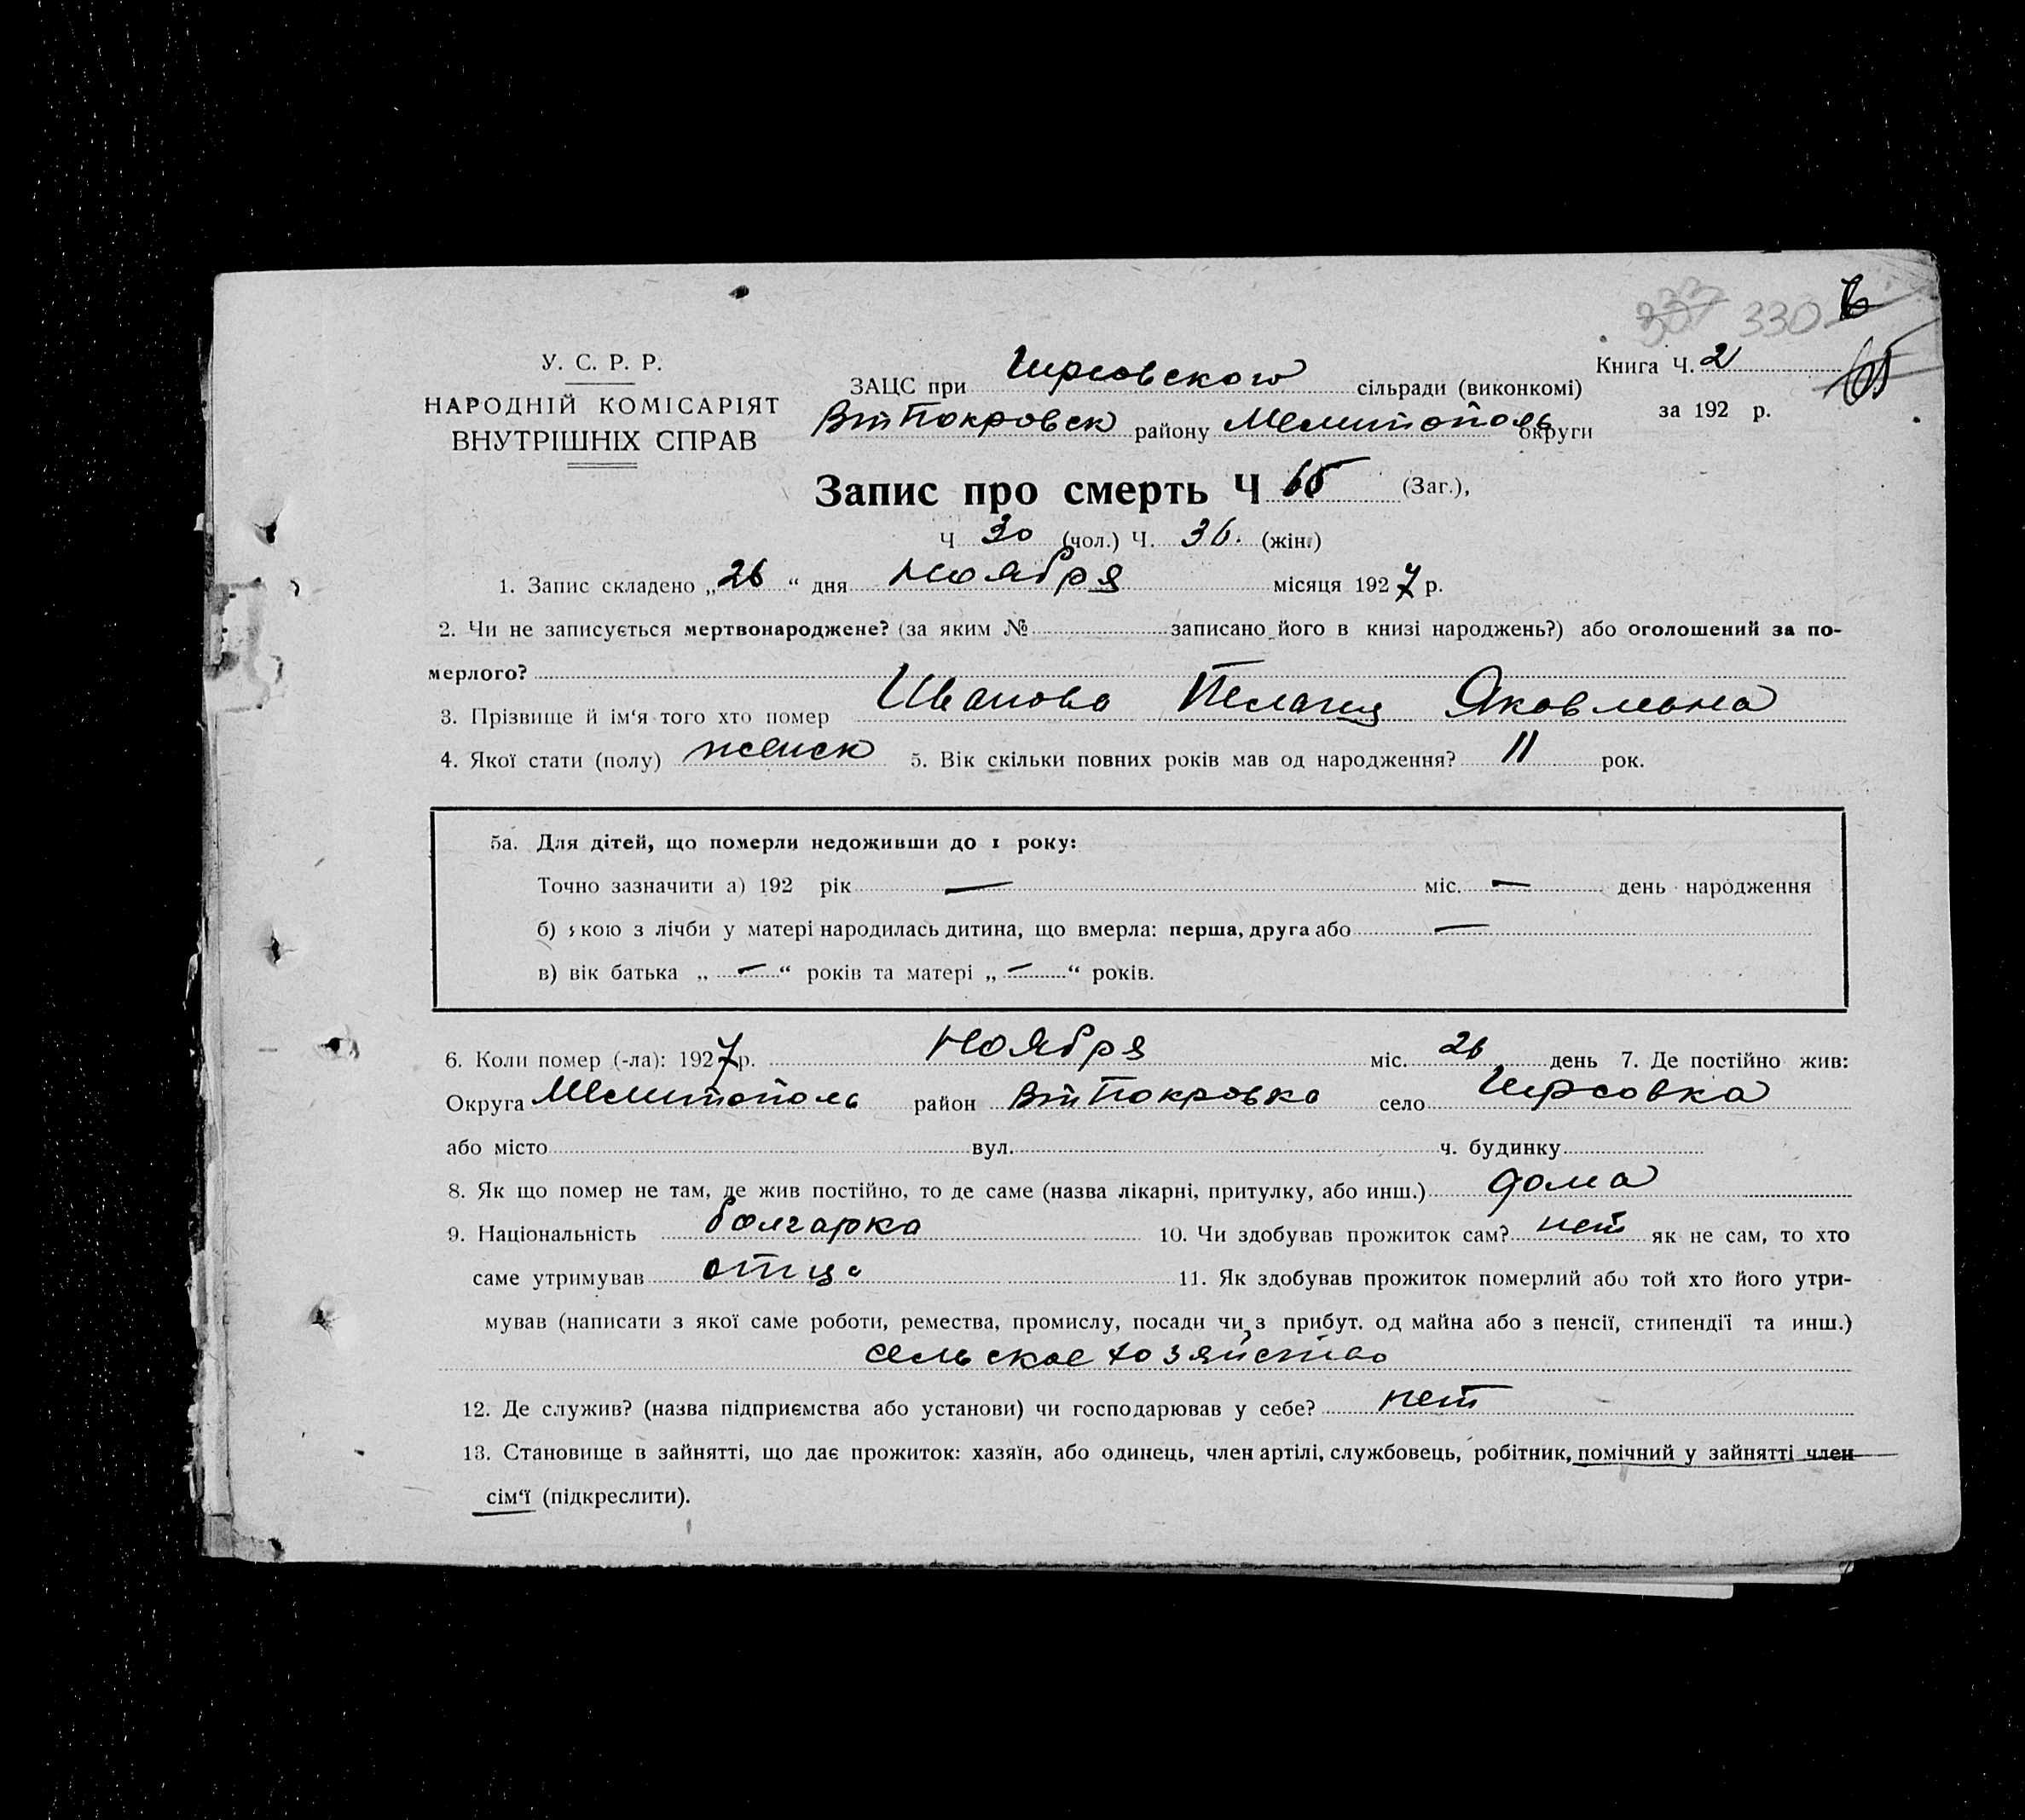 337 330 6
У. С. Р. Р.
НАРОДНІЙ КОМІСАРІЯТ
ВНУТРІШНІХ СПРАВ
ЗАЦС при Гирсовского сільради (виконкомі)
ВтПокровск району Мелитополь округи
Книга Ч. 2
за 192 р.
Запис про смерть Ч 66 (Заг.),
Ч 30 (чол.) Ч. 36. (жін.)
1. Запис складено „26“ дня Ноября місяця 1927 р.
2. Чи не записується мертвонароджене? (за яким № записано його в книзі народжень?) або оголошений за по-
мерлого?
3. Прізвище й ім‘я того хто помер Иванова Пелагия Яковлевна
4. Якої стати (полу) женск 5. Вік скільки повних років мав од народження? 11 рок.
5а. Для дітей, що померли недоживши до 1 року:
Точно зазначити а) 192 рік — міс. — день народження
б) якою з лічби у матері народилась дитина, що вмерла: перша, друга або —
в) вік батька „—“ років та матері „—“ років.
6. Коли помер (-ла): 1927 р. Ноября міс. 26 день 7. Де постійно жив:
Округа Мелитополь район ВтПокровка село Гирсовка
або місто вул. ч. будинку
8. Як що помер не там, де жив постійно, то де саме (назва лікарні, притулку, або инш.) дома
9. Національність болгарка 10. Чи здобував прожиток сам? нет як не сам, то хто
саме утримував отца 11. Як здобував прожиток померлий або той хто його утри-
мував (написати з якої саме роботи, ремества, промислу, посади чи з прибут. од майна або з пенсії, стипендії та инш.)
сельское хозяйство
12. Де служив? (назва підприємства або установи) чи господарював у себе? нет
13. Становище в зайнятті, що дає прожиток: хазяїн, або одинець, член артілі, службовець, робітник, помічний у зайнятті член
сім‘ї (підкреслити).